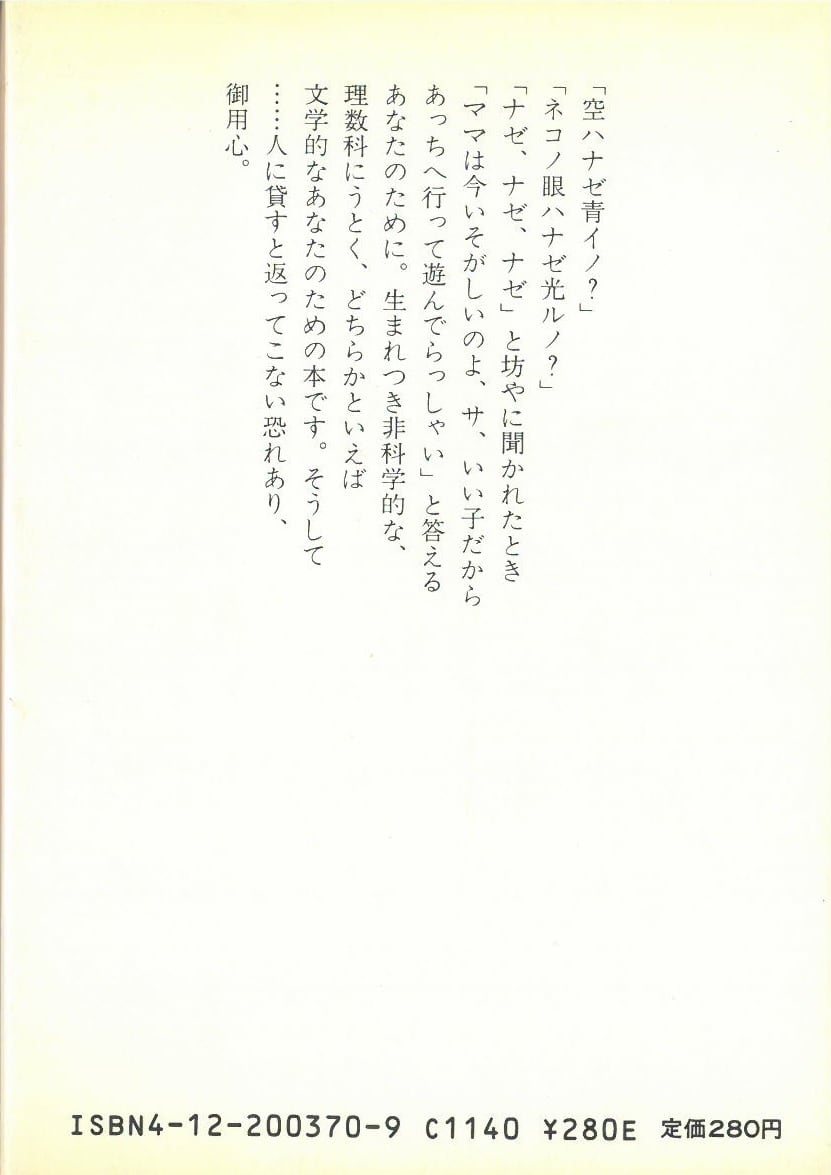 「空ハナゼ青イノ?」
「ネコノ眼ハナゼ光ルノ?」
「ナゼ、ナゼ、ナゼ」と坊やに聞かれたとき
「ママは今いそがしいのよ、サ、いい子だから
あっちへ行って遊んでらっしゃい」と答える
あなたのために。生まれつき非科学的な、
理数科にうとく、どちらかといえば
文学的なあなたのための本です。そうして
……人に貸すと返ってこない恐れあり、
御用心。
ISBN4-12-200370-9 C1140 ¥280E 定価280円